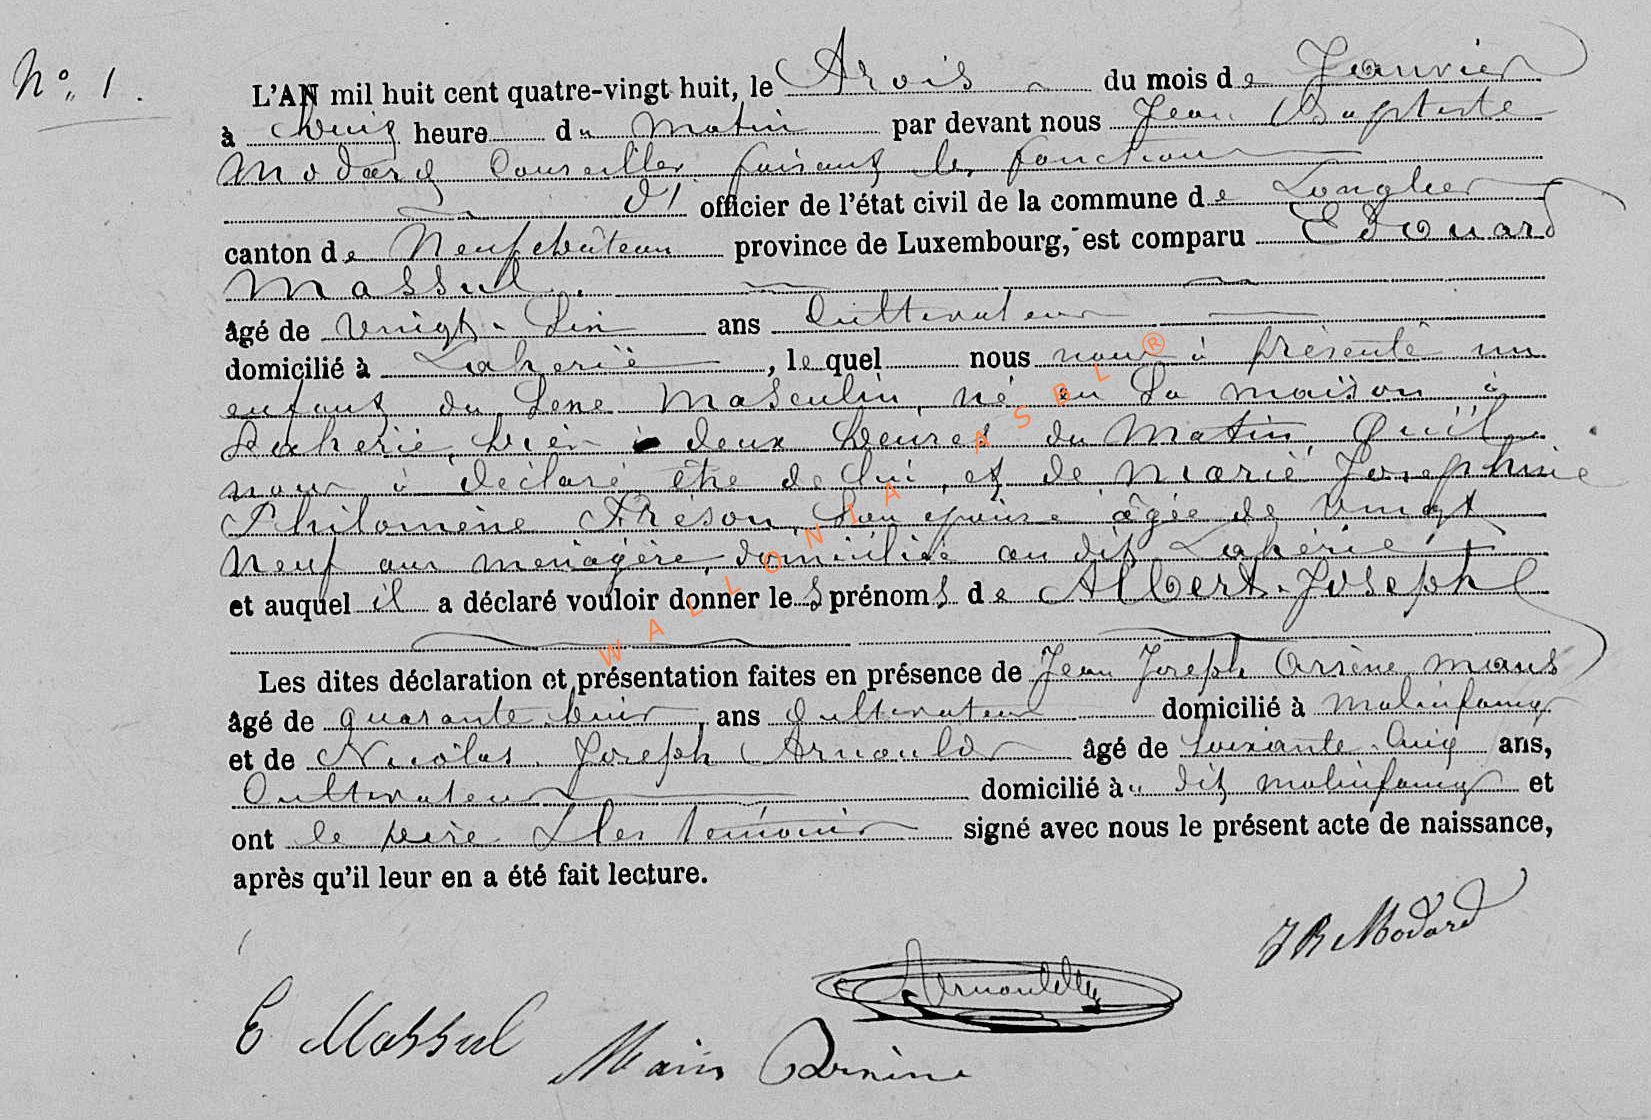 N° 1.
L'AN mil huit cent quatre-vingt huit, le Trois du mois de Janvier
à huit heure du matin par devant nous Jean Baptiste
Modard Conseiller faisant les fonctions
d' officier de l'état civil de la commune de Longlier
canton de Neufchâteau province de Luxembourg, est comparu Edouard
Massul.
âgé de vingt-six ans Cultivateur
domicilié à Lahérie, lequel nous nous à présenté un
enfant du Sexe Masculin, né en Sa maison à
Laherie, hier à deux heures du Matin, Qu'il
nous à déclaré être de lui, et de Marie Josephine
Philomène Fréson, Son épouse âgée de Vingt
Neuf ans ménagère, domiciliée au dit Lahérie
et auquel il a déclaré vouloir donner les prénoms de Albert-Joseph
Les dites déclaration et présentation faites en présence de Jean Joseph Arsène Mans
âgé de quarante huit ans Cultivateur domicilié à Molinfaing
et de Nicolas Joseph Arnould âgé de Soixante-Cinq ans,
Cultivateur domicilié à u dit molinfaing et
ont le père & les témoins signé avec nous le présent acte de naissance,
après qu'il leur en a été fait lecture.
JB Modard
E Massul
WALLONIA ASBL ®